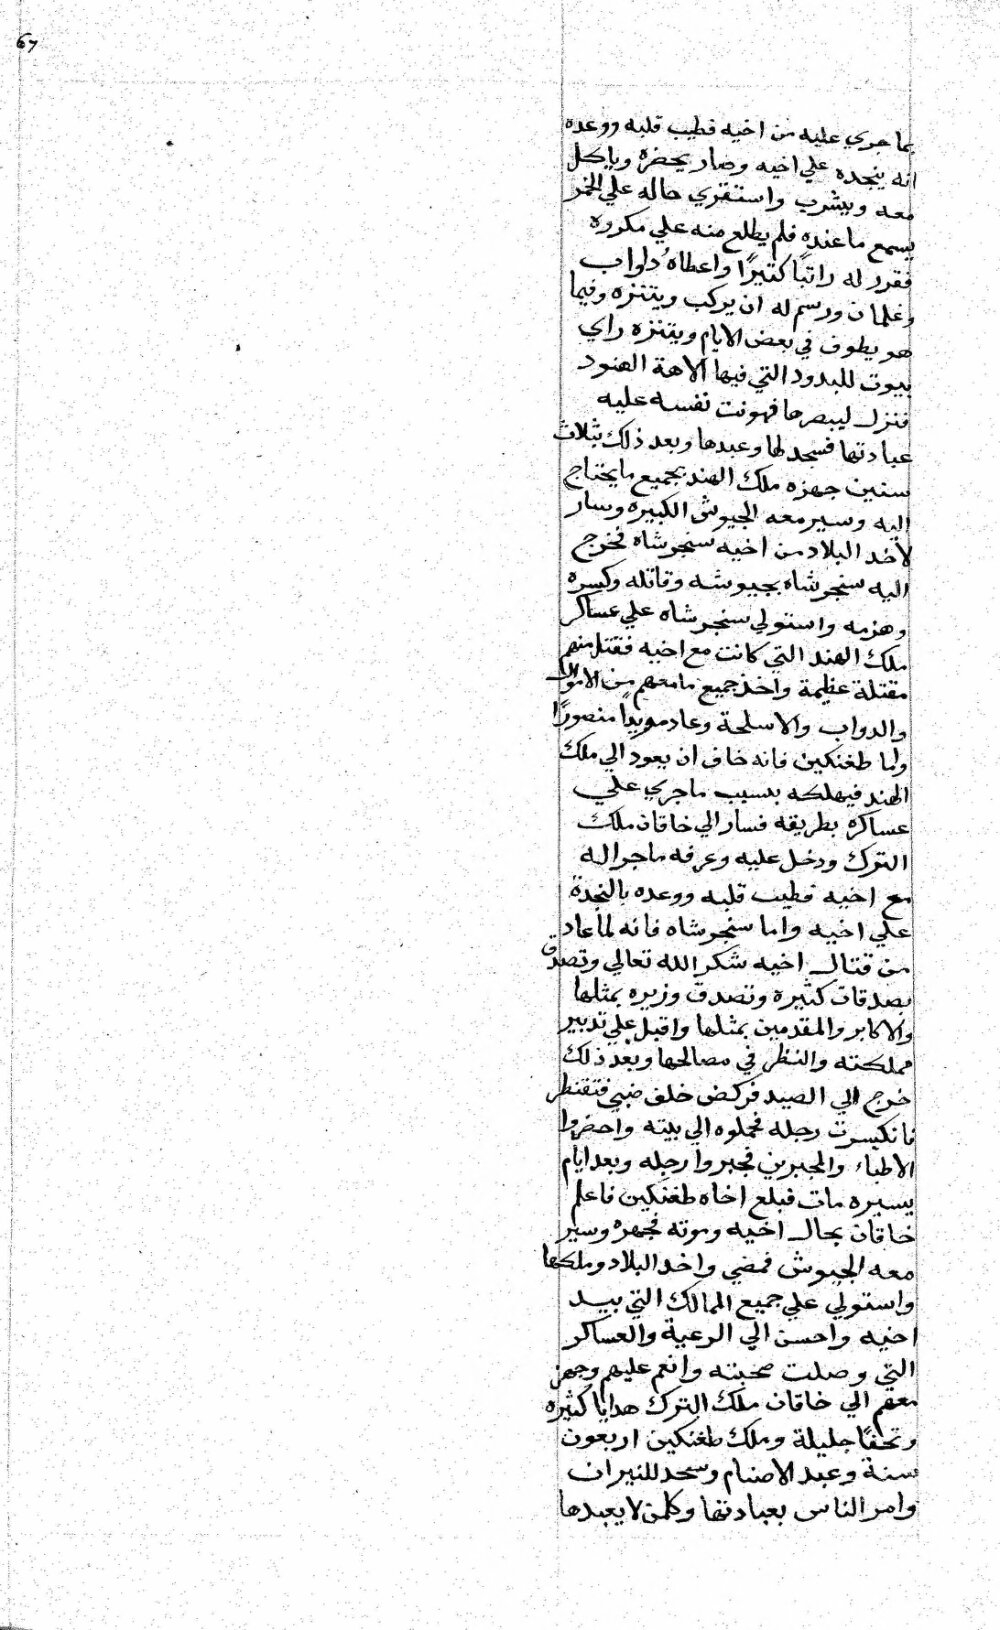 67
بما جري عليه من اخيه فطيب قلبه ووعده
انه ينجده علي اخيه وصار يحضره وياكل
معه ويشرب واستقري حاله علي الخمر
يسمع ما عنده فلم يطلع منه علي مكروه
فقرر له راتبًا كثيرًا واعطاه دواب
وغلمان ورسم له ان يركب ويتنزه وفيما
هو يطوف في بعض الايام ويتنزه راي
بيوت للبدود التي فيها آلاهة الهنود
فنزل ليبصرها فهونت نفسه عليه
عبادتها فسجد لها وعبدها وبعد ذلك بثلاث
سنين جهزه ملك الهند بجميع ما يحتاج
اليه وسير معه الجيوش الكبيره وسار
لاخد البلاد من اخيه سنجرشاه فخرج
اليه سنجرشاه بجيوشه وقاتله وكسره
وهزمه واستولي سنجرشاه علي عساكر
ملك الهند التي كانت مع اخيه فقتل منهم
مقتلة عظيمة واخذ جميع ما معهم من الاموال
والدواب والاسلحة وعاد مويدًا منصورًا
واما طغنكين فانه خاف ان يعود الي ملك
الهند فيهلكه بسبب ما جري علي
عساكره بطريقه فسار الي خاقان ملك
الترك ودخل عليه وعرفه ما جرا له
مع اخيه فطيب قلبه ووعده بالنجدة
علي اخيه واما سنجرشاه فانه لما عاد
من قتال اخيه شكر الله تعالي وتصدق
بصدقات كثيرة وتصدق وزيره بمثلها
والاكابر والمقدمين بمثلها واقبل علي تدبير
مملكته والنظر في مصالحها وبعد ذلك
خرج الي الصيد فركض خلف ضبي فتقنطر
فانكسرت رجله فحملوه الي بيته واحضروا
الاطباء والمجبرين فجبروا رجله وبعد ايام
يسيره مات فبلغ اخاه طغنكين فاعلم
خاقان بحال اخيه وموته فجهزه وسير
معه الجيوش فمضي واخد البلاد وملكها
واستولي علي جميع الممالك التي بيد
اخيه واحسن الي الرعية والعساكر
التي وصلت صحبته وانعم عليهم وجهز
معهم الي خاقان ملك الترك هدايا كثيره
وتحفًا جليلة وملك طغنكين اربعون
سنة وعبد الاصنام وسجد للنيران
وامر الناس بعبادتها وكلمن لا يعبدها